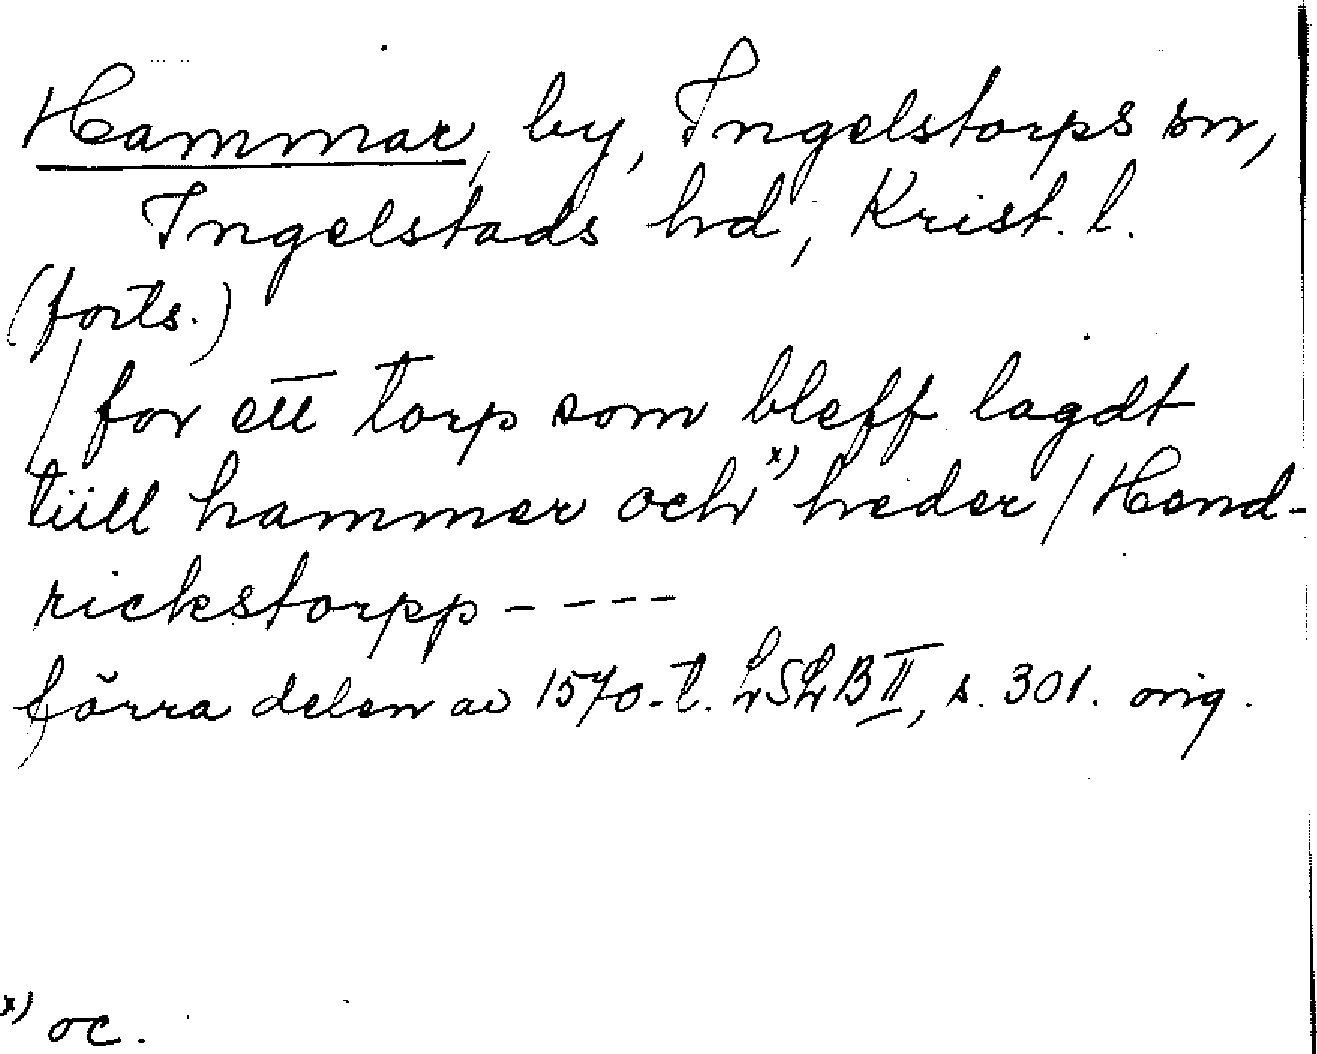 Hammar, by, Ingelstorps sn,
Ingelstads hd, Krist. l.
(forts.)
/ for ett torp som bleff lagdt
tiill hammer och x) heder / Hend-
rickstorpp - - - -
förra delen av 1570-t. LSLB II, s. 301. orig.
x) oc.